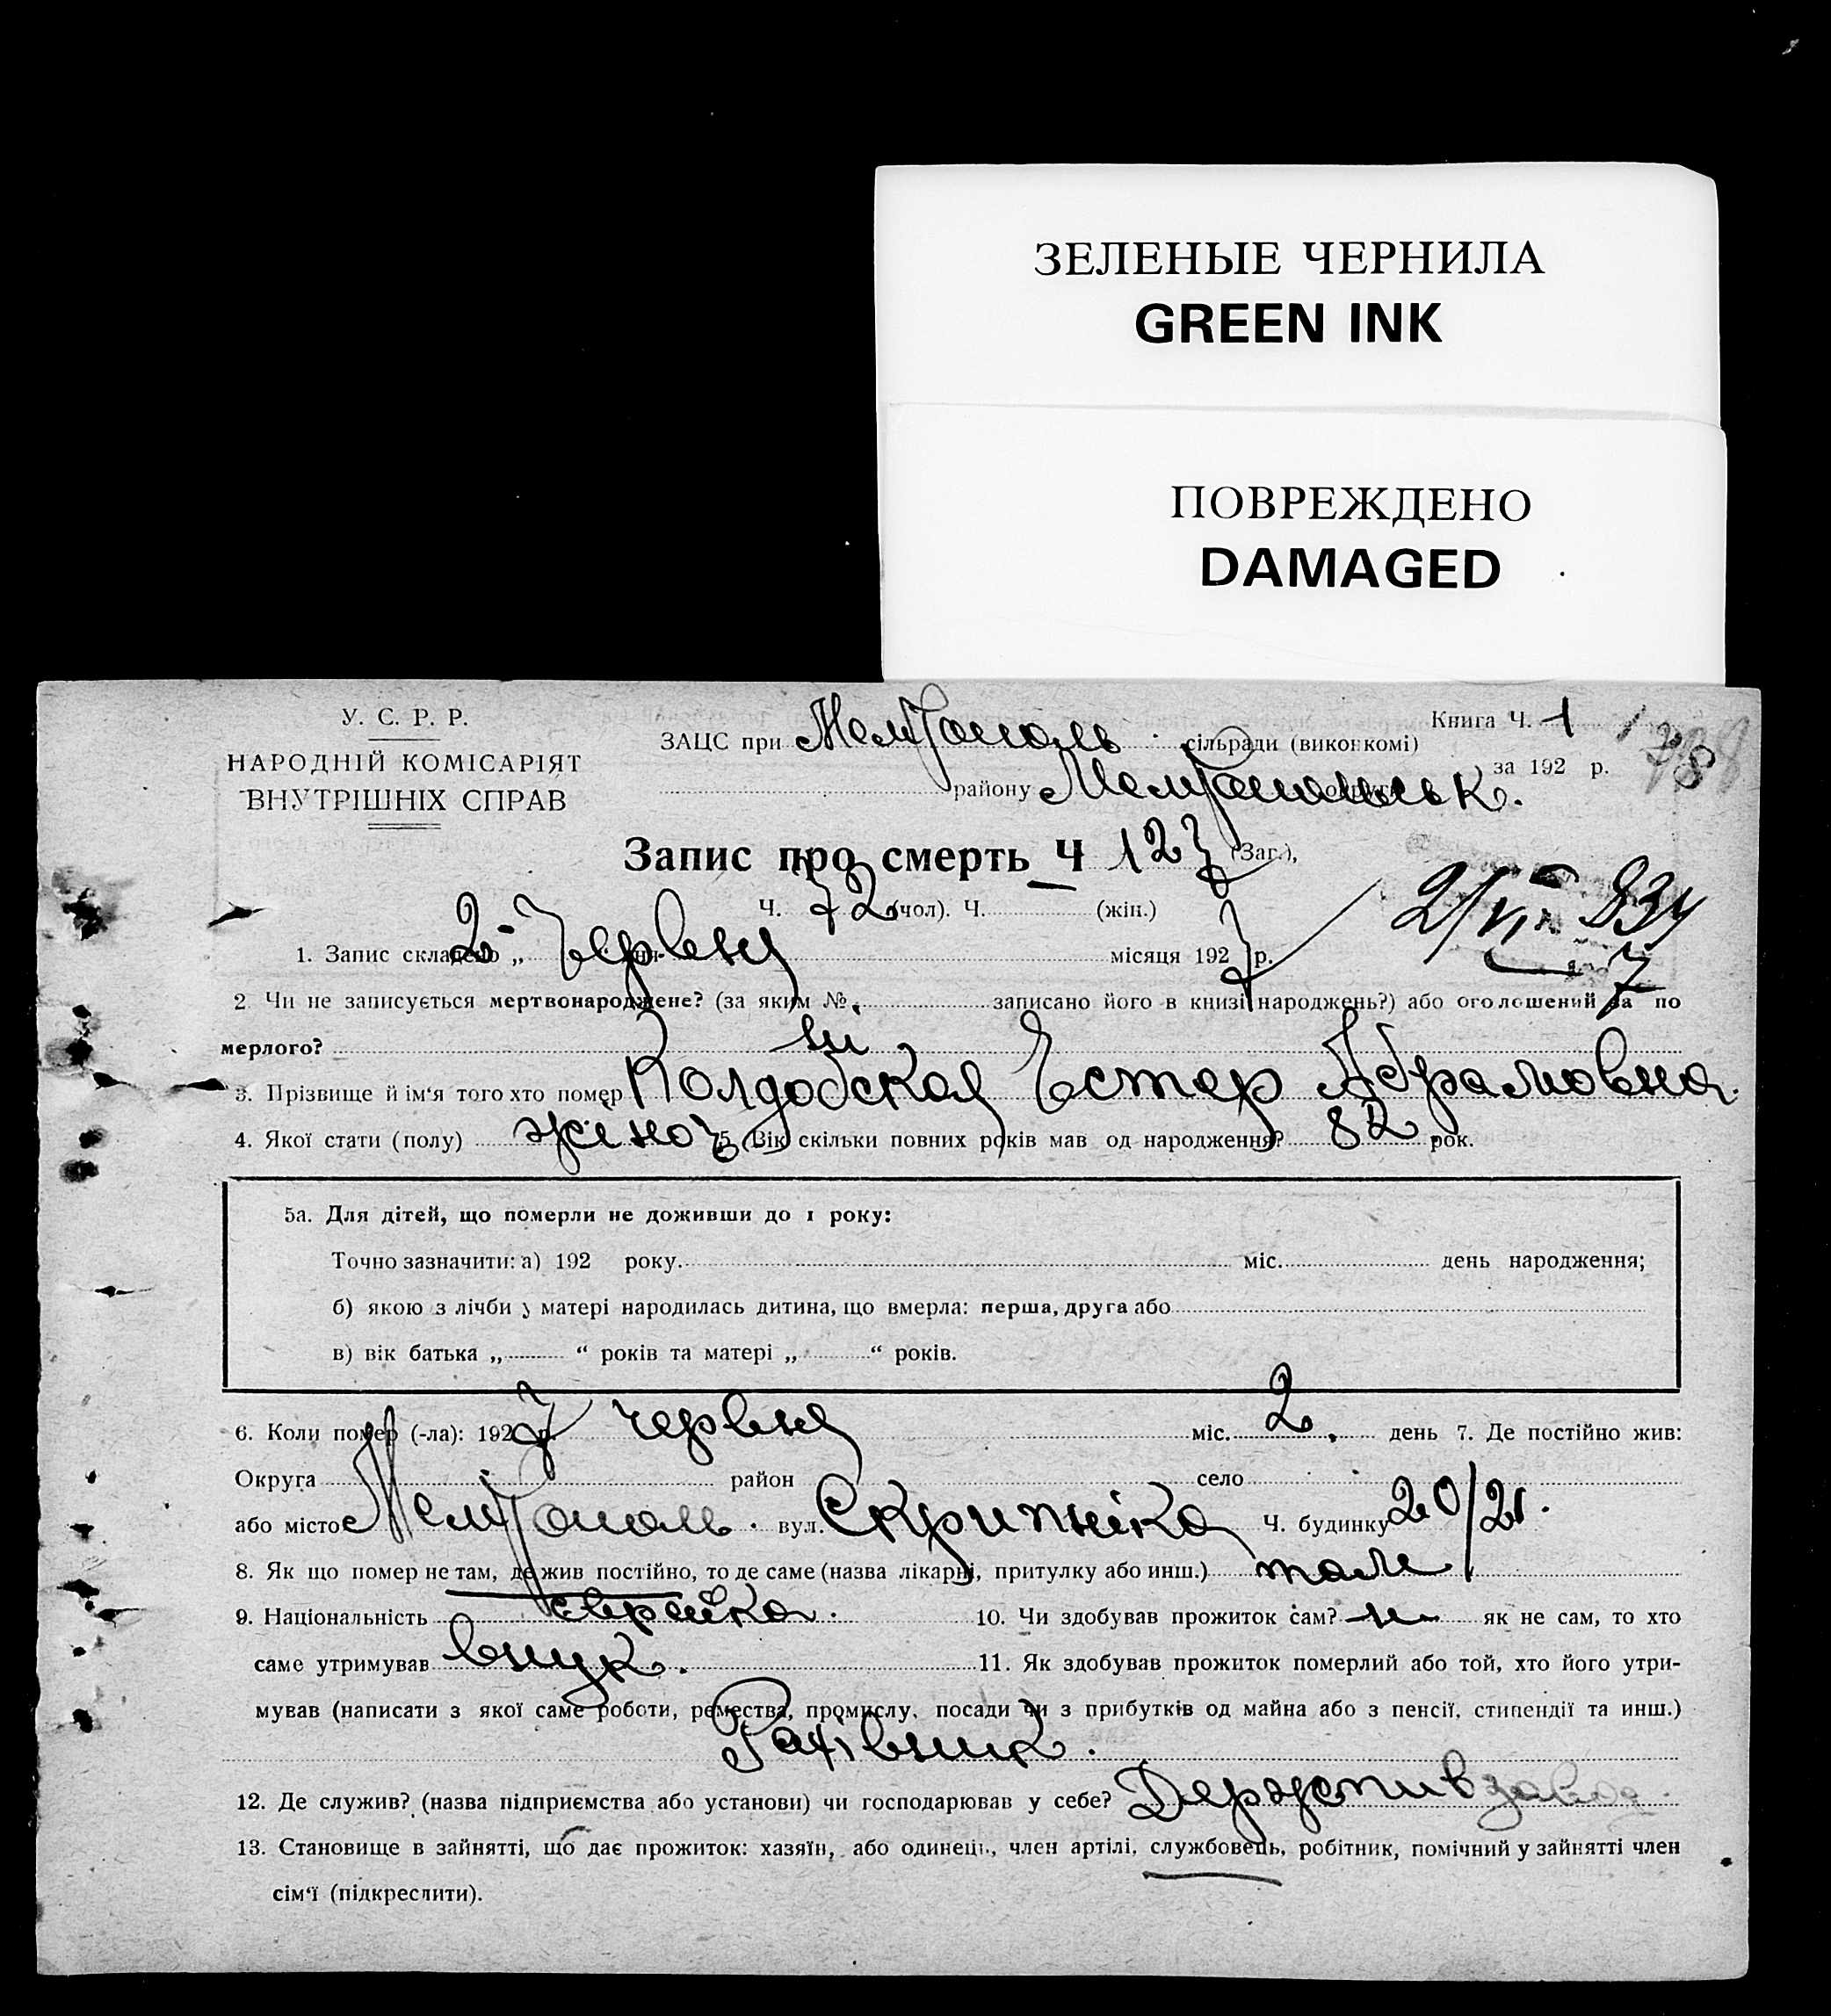 ЗЕЛЕНЫЕ ЧЕРНИЛА
GREEN INK
ПОВРЕЖДЕНО
DAMAGED
У. С. Р. Р.
НАРОДНІЙ КОМІСАРІЯТ
ВНУТРІШНІХ СПРАВ
Книга Ч. 1
ЗАЦС при Мелітополь сільради (виконкомі)
за 192 р.
району Мелітопольськ. округи
Запис про смерть Ч 127 (Заг.),
Ч. 72 (чол). Ч. (жін.)
1. Запис складено „ 2 червня дня місяця 1927 р.
2 Чи не записується мертвонароджене? (за яким № записано його в книзі народжень?) або оголошений за по
мерлого? ні
3. Прізвище й ім'я того хто помер Колдобская Естер Абрамовна.
4. Якої стати (полу) жіноч. 5. Вік скільки повних років мав од народження? 82 рок.
5а. Для дітей, що померли не доживши до 1 року:
Точно зазначити: а) 192 року. міс. день народження;
б) якою з лічби у матері народилась дитина, що вмерла: перша, друга або
в) вік батька „ “ років та матері „ “ років.
6. Коли помер (-ла): 1927 р. червня міс. 2. день 7. Де постійно жив:
Округа район село
або місто Мелітополь. вул. Скрипніка Ч. будинку 20/21.
8. Як що помер не там, де жив постійно, то де саме (назва лікарні, притулку або инш.) там
9. Національність еврейка. 10. Чи здобував прожиток сам? н як не сам, то хто
саме утримував внук. 11. Як здобував прожиток померлий або той, хто його утри-
мував (написати з якої саме роботи, ремества, промислу, посади чи з прибутків од майна або з пенсії, стипендії та инш.)
Рахівник.
12. Де служив? (назва підприємства або установи) чи господарював у себе? завод.
13. Становище в зайнятті, що дає прожиток: хазяїн, або одинець, член артілі, службовець, робітник, помічний у зайнятті член
сім'ї (підкреслити).